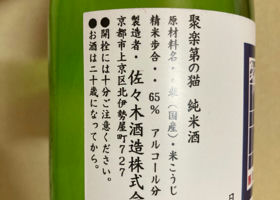 聚楽第の猫 純米酒
原材料名・・米(国産)・米こうじ
精米歩合・・65% アルコール分
製造者・佐々木酒造株式会
京都市上京区北伊勢屋町727
●開栓には十分ご注意ください。
●お酒は二十歳になってから。
日